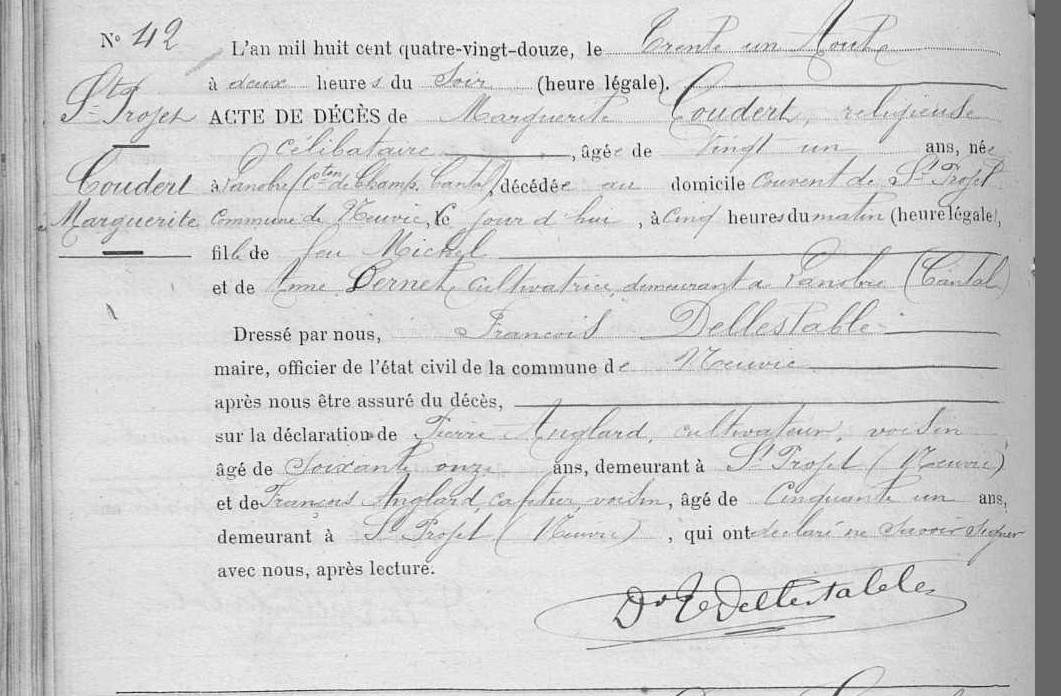 N° 42
St Projet
Coudert
Marguerite
L'an mil huit cent quatre-vingt-douze, le Trente un Aout
à deux heures du Soir (heure légale).
ACTE DE DÉCÈS de Marguerite Coudert, religieuse
Célibataire, âgée de Vingt un ans, née
à (Cton de Champs, Cantal), décédée au domicile Couvent de St Projet
Commune de Neuvic, le jour d'hui, à Cinq heures du matin (heure légale),
fille de feu Michel
et de Anne Vernet, cultivatrice, demeurant à (Cantal)
Dressé par nous, François Dellestable
maire, officier de l'état civil de la commune de Neuvic
après nous être assuré du décès,
sur la déclaration de Pierre Anglard, cultivateur, voisin
âgé de Soixante onze ans, demeurant à St Projet (Neuvic)
et de François Anglard, voisin, âgé de Cinquante un ans,
demeurant à St Projet (Neuvic), qui ont declaré ne Savoir Signer
avec nous, après lecture.
Dr Dellestable